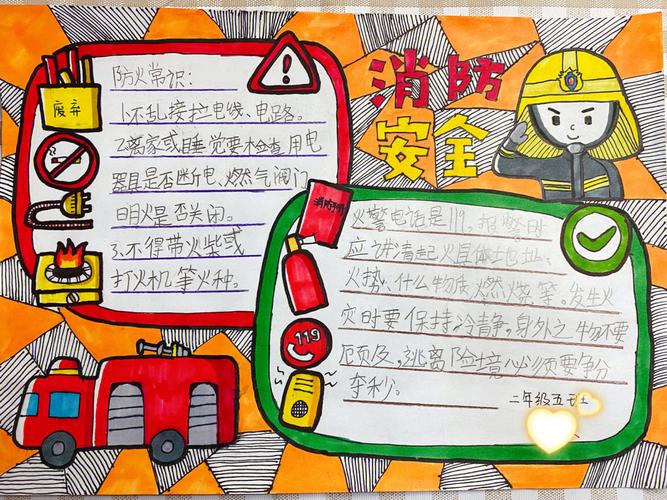 消防
安全
防火常识：
1.不乱接拉电缘、电路。
2.离家或睡觉要检查用电
器具是否断电、燃气阀门
明火是否关闭。
3.不得带火柴或
打火机等火种。
废弃
火警电话是119。报警时
应讲清起火具体地址、
火势、什么物质燃烧等。发生火
灾时要保持冷静，身外之物不要
顾及，逃离险境必须要争分
夺秒。
119
二年级五班